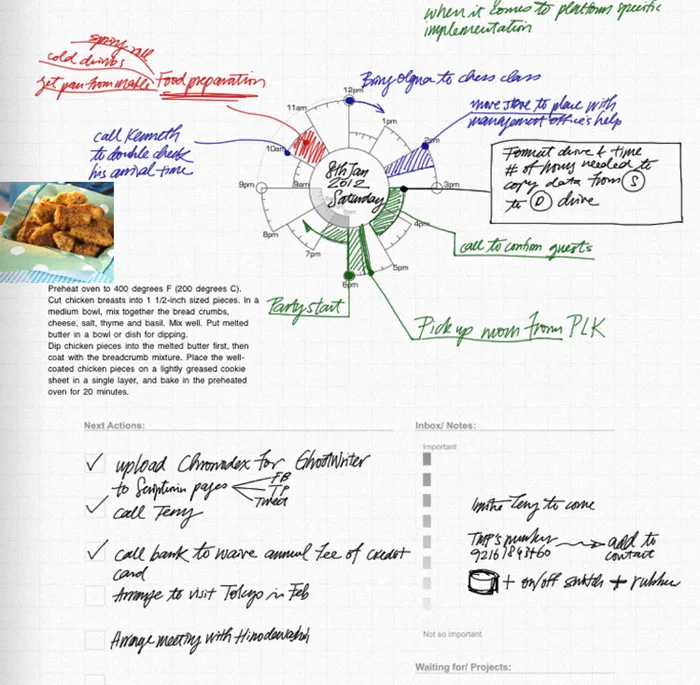 when it comes to platform specific
implementation
spring roll
cold drinks
get pan from
Food preparation
Bring Olgna to chess class
12pm
11am
1pm
move stove to place with
management office's help
call Kenneth
to double check
his arrival time
10am
2pm
Format drive & time
# of hours needed to
copy data from S
to D drive
9pm
9am
8th Jan
2012
Saturday
3pm
8pm
4pm
7pm
5pm
call to confirm guests
6pm
Party start
Pick up mom from PLK
Preheat oven to 400 degrees F (200 degrees C).
Cut chicken breasts into 1 1/2-inch sized pieces. In a
medium bowl, mix together the bread crumbs,
cheese, salt, thyme and basil. Mix well. Put melted
butter in a bowl or dish for dipping.
Dip chicken pieces into the melted butter first, then
coat with the breadcrumb mixture. Place the well-
coated chicken pieces on a lightly greased cookie
sheet in a single layer, and bake in the preheated
oven for 20 minutes.
Next Actions:
upload Chronodex for GhostWriter
to Scription pages
FB
TP
Tweet
call Terry
call bank to waive annual fee of credit
card
Arrange to visit Tokyo in Feb
Arrange meeting with
Inbox/ Notes:
Important
invite Terry to come
TMP's number
add to
contact
+ on/off switch + rubber
Not so important
Waiting for/ Projects: